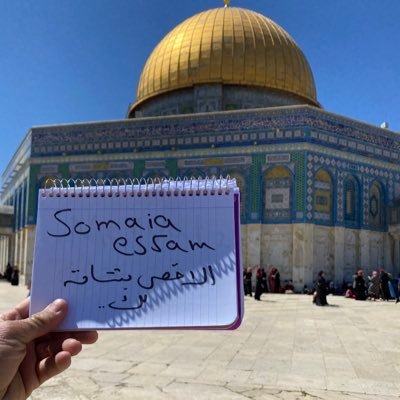 Somaia
essam
الاقصى بشتاقة
لكِ..